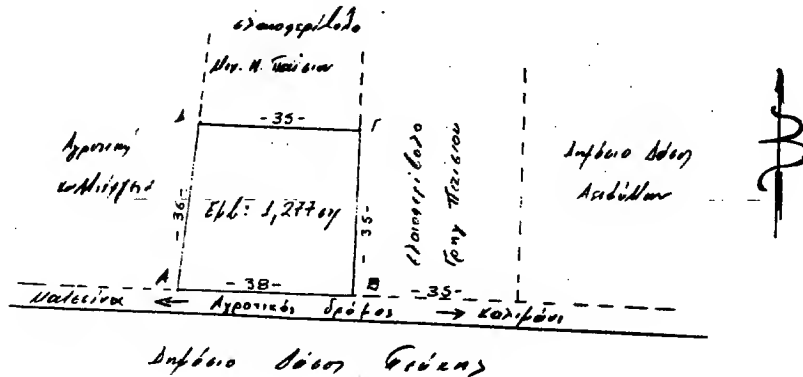 ελαιοπερίβολο
Μιχ. Η. Παϊσίου
Δ -35- Γ
Αγροτική
καλλιέργεια
-36-
Εμβ: 1,277 στρ
-35-
ελαιοπερίβολο
Γρηγ Παϊσίου
Δημόσιο Δάσος
Αειφύλλων
Α -38- Β -35-
Ματσίνα ← Αγροτικός δρόμος → Καλιμάνι
Δημόσιο Δάσος Πεύκης